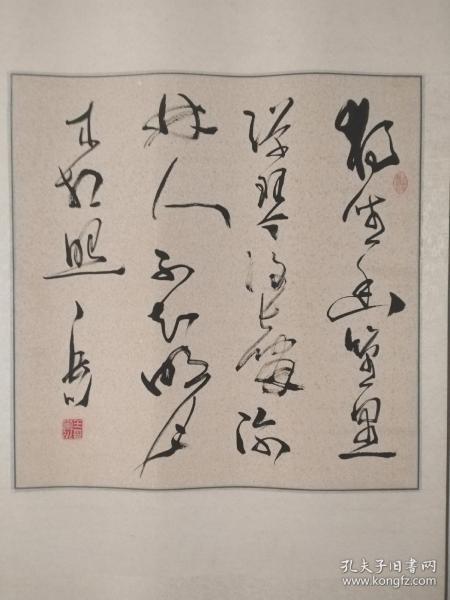 独坐幽篁里
弹琴复长啸深
林人不知明月
来相照
孔夫子旧书网
www.kongfz.com